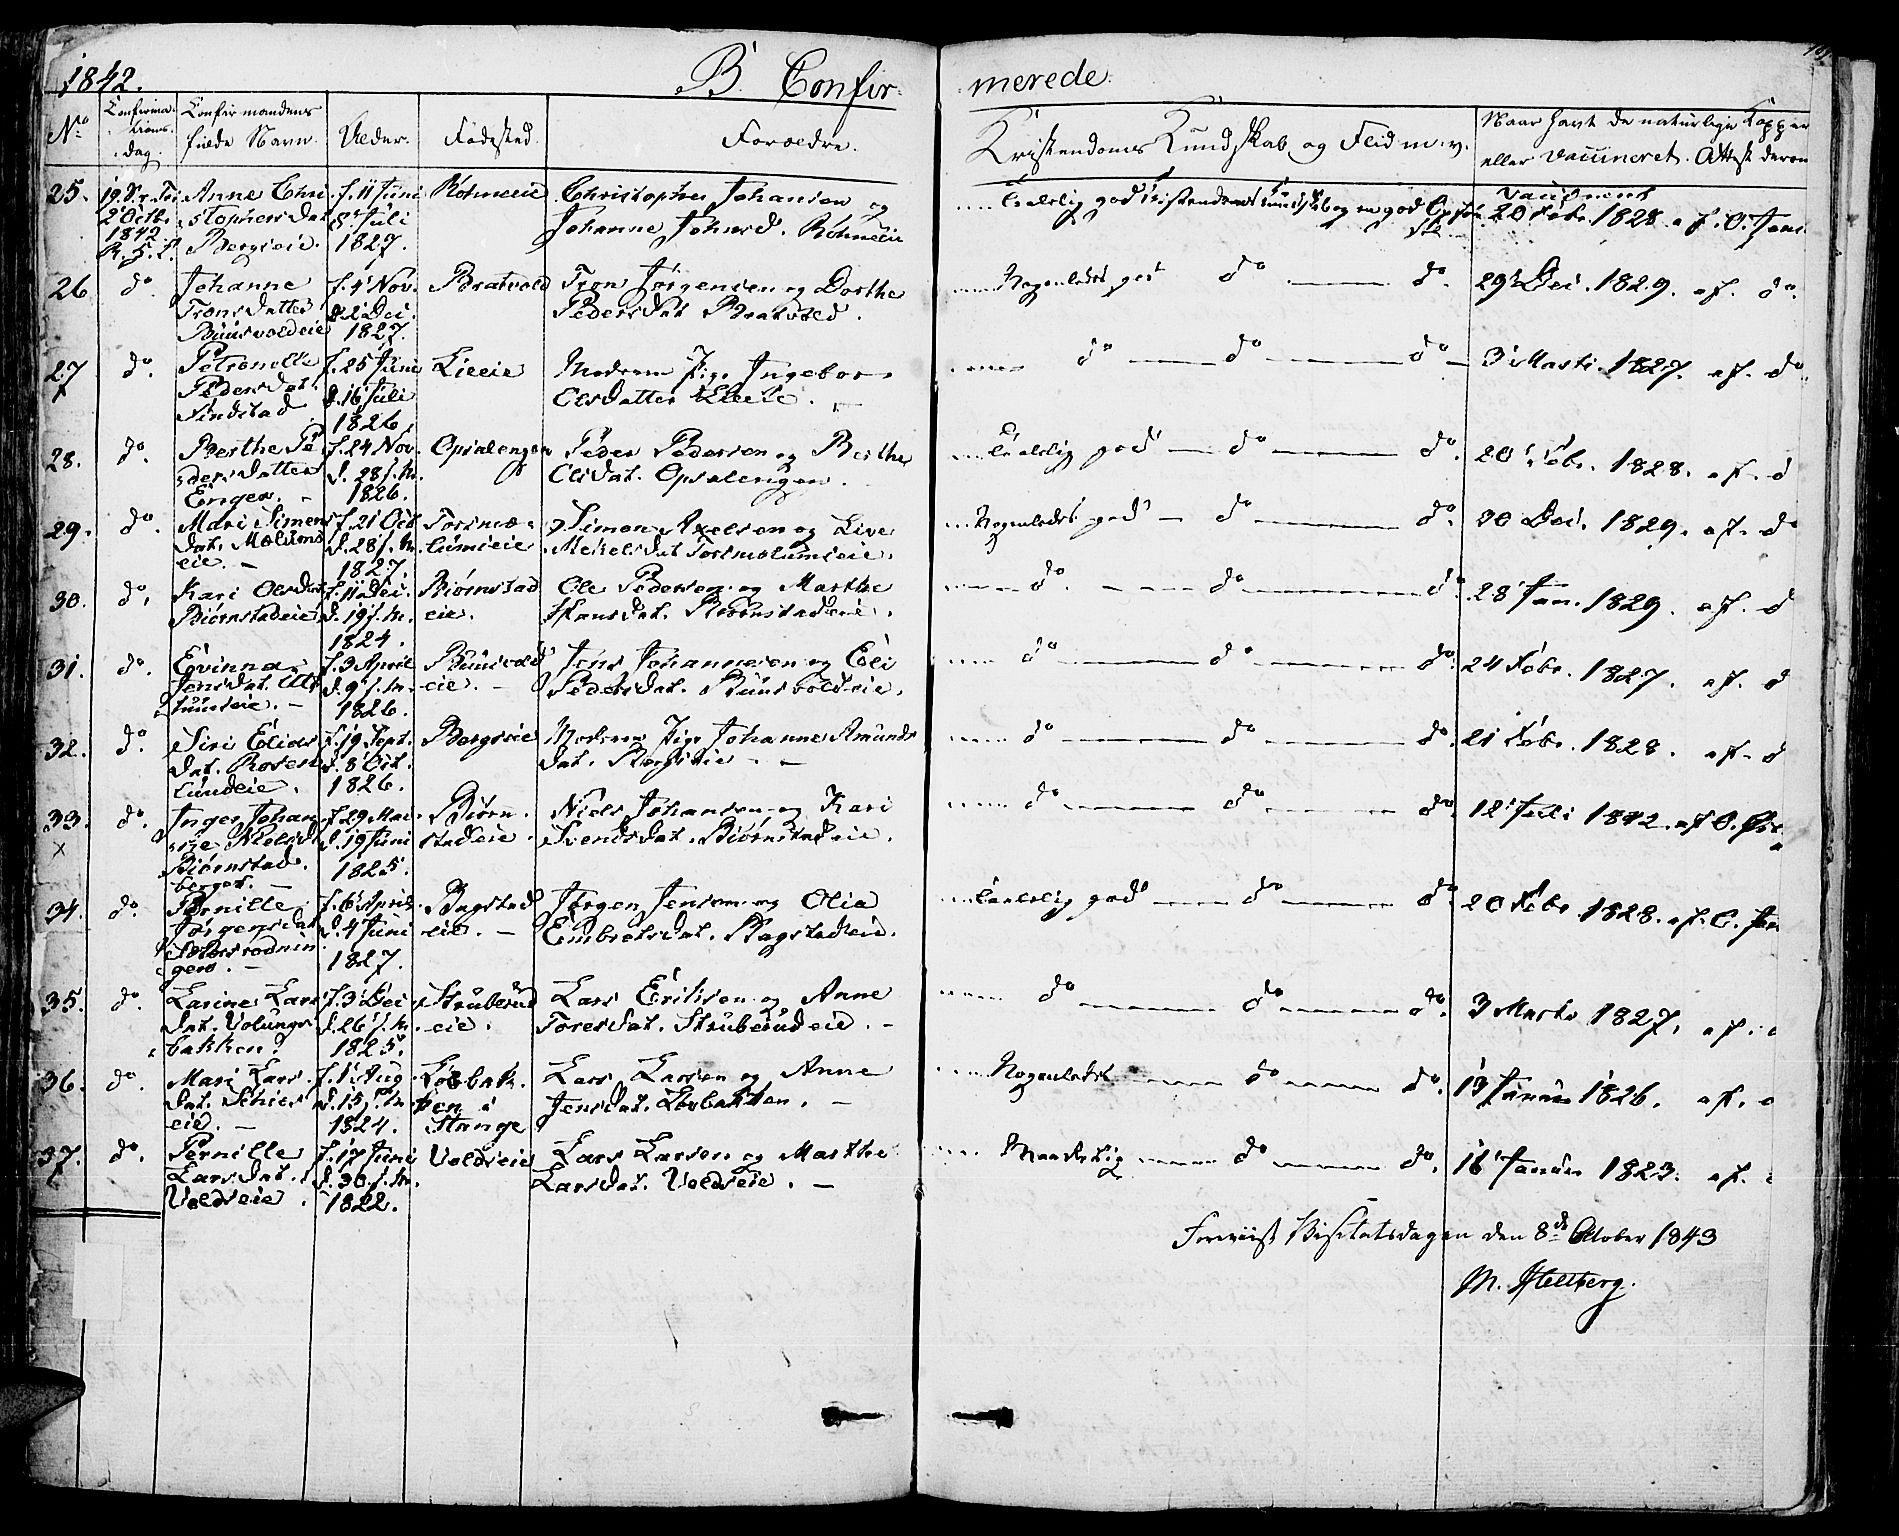 1842.
B. Confir-
merede.
No
Confirma-
tions-
dag.
Confirmandens
fulde Navn.
Alder.
Fødested.
Forældre.
Kristendoms Kundskab og Flid m. v.
Naar havt de naturlige Kopper
eller vaccineret. Attest derom
25.
2 Octbr.
1842
Anne Chri
stophersdat
Bergseie.
f. 11 Juni
8 Juli
1827.
Christopher Johansen og
Johanne Johnsd.
20 Febr. 1828 af O. Jans
26
do.
Johanne
Tronsdatter
Buusvoldeie
f. 4 Nov.
1827.
Bratvold
Tron Jørgensen og Dorthe
Pedersdat Bratvold.
Nogenledes god do do.
29 Dec. 1829. af. do.
27
do.
Petronelle
Pedersdat.
Sindstad
f. 25 Juni
d. 16 Juli
1826.
Lieeie
Moderen Pige Ingebor
Olsdatter Lieeie.
do do do
3 Marts. 1827. af. do.
28.
do.
Berthe Pe
dersdatter
Enger.
f. 24 Nov.
d. 28 s. M.
1826.
Opsalengen
Peder Pedersen og Berthe
Olsdat. Opsalengen.
god do do.
20 Febr. 1828. af. d
29.
do.
Mari Simens
dat.
eie.
f. 21 Oct
d. 28 s. M.
1827.
Simon Axelsen og Live
Mikelsdat
Nogenledes god do do.
30 Dec. 1829. af. do
30.
do.
Kari Olsdat
Biørnstadeie
f. 11 Dec.
d. 19 s. M.
1824.
Biørnstad
eie.
Ole Pedersen og Marthe
Hansdat. Biørnstadeie.
do. do do
28 Jan. 1829. af. d
31.
do.
Evinna
Jensdat.
f. 3 April
d. 9 s. M.
1826.
Buusvold
eie.
Jens Johannesen og Eli
Pedersdat. Buusvoldeie.
do do do.
24 Febr. 1827. af. d
32.
do.
Siri Elias
dat. Rosen
lundeie.
f. 19 Sept.
d. 8 Oct.
1826.
Bergseie
Moderen Pige Johanne Amunds
dat. Bergseie
do do do.
21 Febr. 1828. af. d
33.
×
do.
Inger Johan
ne Nielsd
Biørnstad
berget.
f. 29 Mai
d. 19 Juni
1825.
Biørn-
stadeie.
Niels Johansen og Kari
Svendsdat. Biørnstadeie.
do do do
12 Juli 1842. af O.
34.
do.
Pernille
Jørgensdat
f. 6 April
d. 4 Juni
1827.
Bagstad
eie.
Jørgen Jensen og Olia
Embretsdat. Bagstadeie.
god do do.
20 Febr. 1828. af. O. Jan
35.
do.
Larine Lars
dat. Volungs
bakken.
f. 3 Dec
d. 26 s. M.
1825.
Struberud
eie.
Lars Eriksen og Anne
Toresdat. Struberudeie.
do do do.
3 Marts 1827. af.
36.
do.
Mari Lars
dat. Schies
eie.
f. 1 Aug
d. 15 s. M
1824.
Lobbak.
ken i
Stange
Lars Larsen og Anne
Jensdat. Lobbakken.
Nogenledes do do.
19 Januar 1826. af.
37.
do.
Pernille
Larsdat.
Voldseie.
f. 17 Juni
d. 30 s. M.
1822.
Voldseie
Lars Larsen og Marthe
Larsdat. Voldseie.
Maadelig do do.
16 Januar 1823. af.
Foreviist Visitatsdagen den 8de October 1843
M. Hellberg.